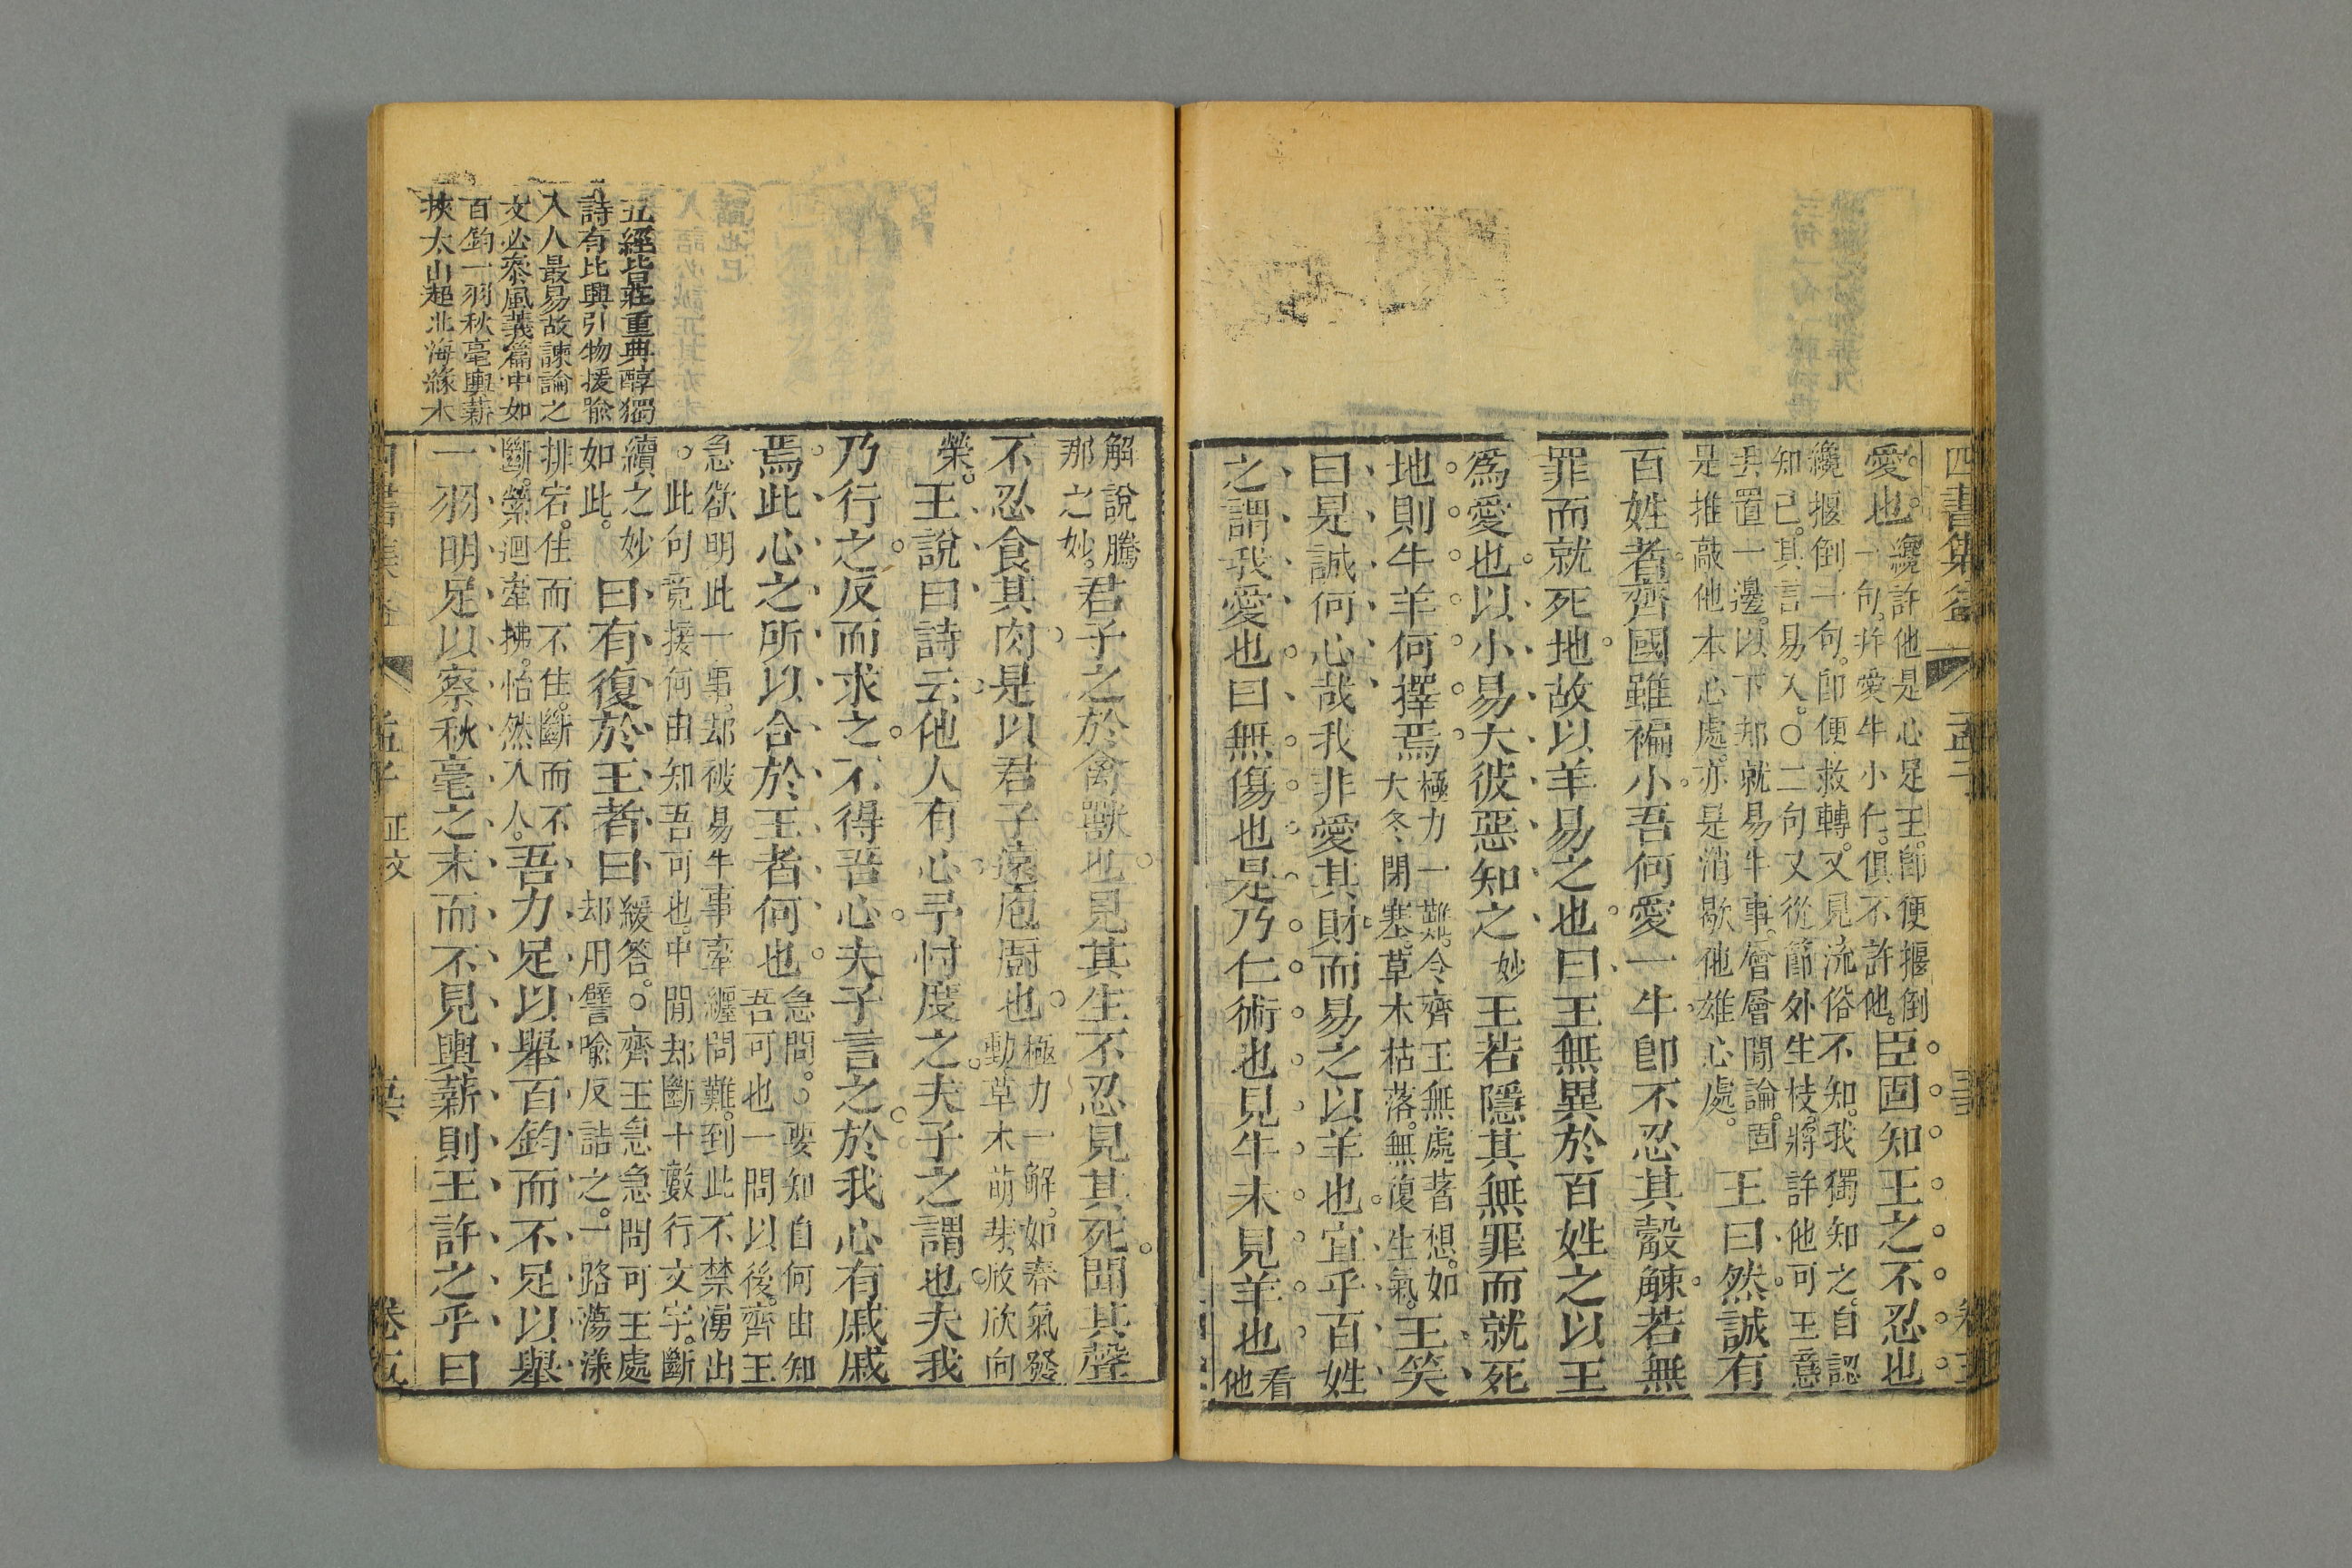 四書集 孟子 卷五
愛也。纔許他是心足王。卽便搌倒
一句。幷愛牛小仁。俱不許他。臣固知王之不忍也
纔搌倒一句。卽便救轉。又見流俗不知。我獨知之。自認
知已。其言易入。○二句又從節外生枝。將許他可王意
丟置一邊。以下却就易牛事。層層閒論。固
是推敲他本心處。亦是消歇他雄心處。王曰然誠有
百姓者齊國雖褊小吾何愛一牛卽不忍其觳觫若無
罪而就死地故以羊易之也曰王無異於百姓之以王
爲愛也以小易大彼惡知之妙王若隱其無罪而就死
地則牛羊何擇焉極力一難。令齊王無處著想。如
大冬閉塞。草木枯落。無復生氣。王笑
曰是誠何心哉我非愛其財而易之以羊也宜乎百姓
之謂我愛也曰無傷也是乃仁術也見牛未見羊也看
他
解說騰
那之妙。君子之於禽獸也見其生不忍見其死聞其聲
不忍食其肉是以君子遠庖厨也極力一解。如春氣發
動草木萌芽。欣欣向
榮。王說曰詩云他人有心予忖度之夫子之謂也夫我
乃行之反而求之不得吾心夫子言之於我心有戚戚
焉此心之所以合於王者何也急問。○要知自何由知
吾可也一問以後。齊王
急欲明此一事。却被易牛事牽纏問難。到此不禁湧出
此句竟接何由知吾可也。中閒却斷十數行文字。斷
續之妙
如此。曰有復於王者曰緩答。○齊王急急問可王處
却用譬喻反詰之。一路蕩漾
排宕。住而不住。斷而不
斷。縈迴牽拂。怡然入人。吾力足以舉百鈞而不足以舉
一羽明足以察秋毫之末而不見輿薪則王許之乎曰
孟子 正文 卷五
五經皆莊重典醇獨
詩有比興引物援喻
入人最易故諫諭之
文必泰風義篇中如
百鈞一羽秋毫輿薪
挾太山超北海緣木